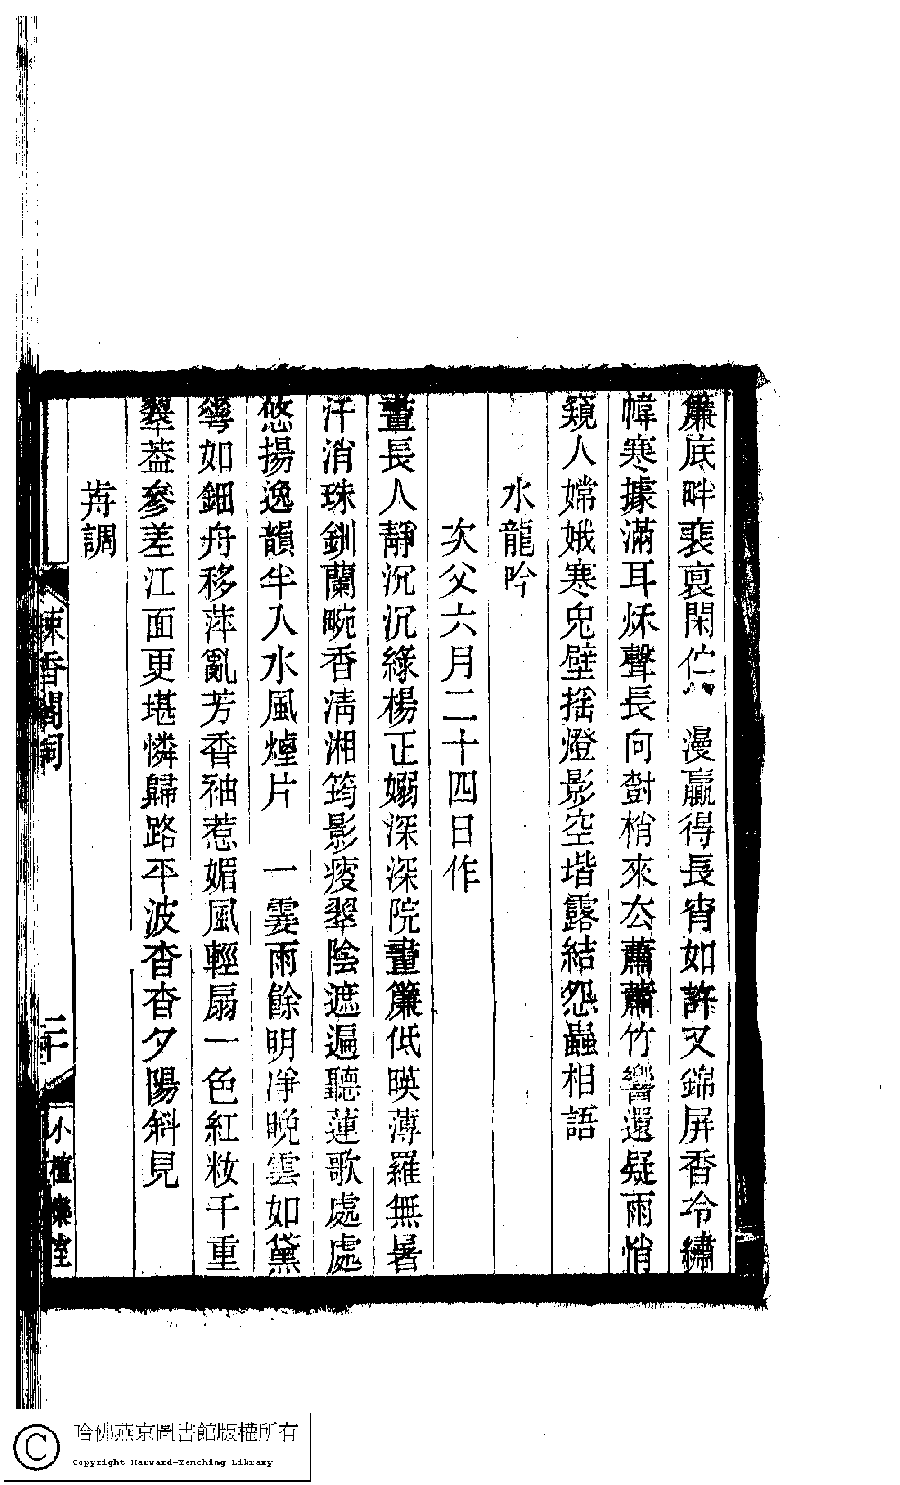 簾底畔裵裒閑伫 漫贏得長宵如許又錦屏香冷繡
幃寒據滿耳秌聲長向對梢來厺蕭蕭竹響還疑雨悄
窺人嫦娥寒兔壁摇燈影空堦露結怨蟲相語
水龍吟
次父六月二十四日作
晝長人靜沉沉綠楊正嫋深深院畫簾低暎薄羅無暑
汗消珠釧蘭畹香淸湘筠影瘦翠陰遮遍聽蓮歌處處
悠揚逸韻半入水風煙片 一霎雨餘明淨晚雲如黛
彎如鈿舟移萍亂芳香袖惹媚風輕扇一色紅妝千重
翠葢參差江面更堪憐歸路平波杳杳夕陽斜見
歬調
棟香閣詞
二十
小檀欒室
哈佛燕京圖書館版權所有
Copyright Harvard-Yenching Library